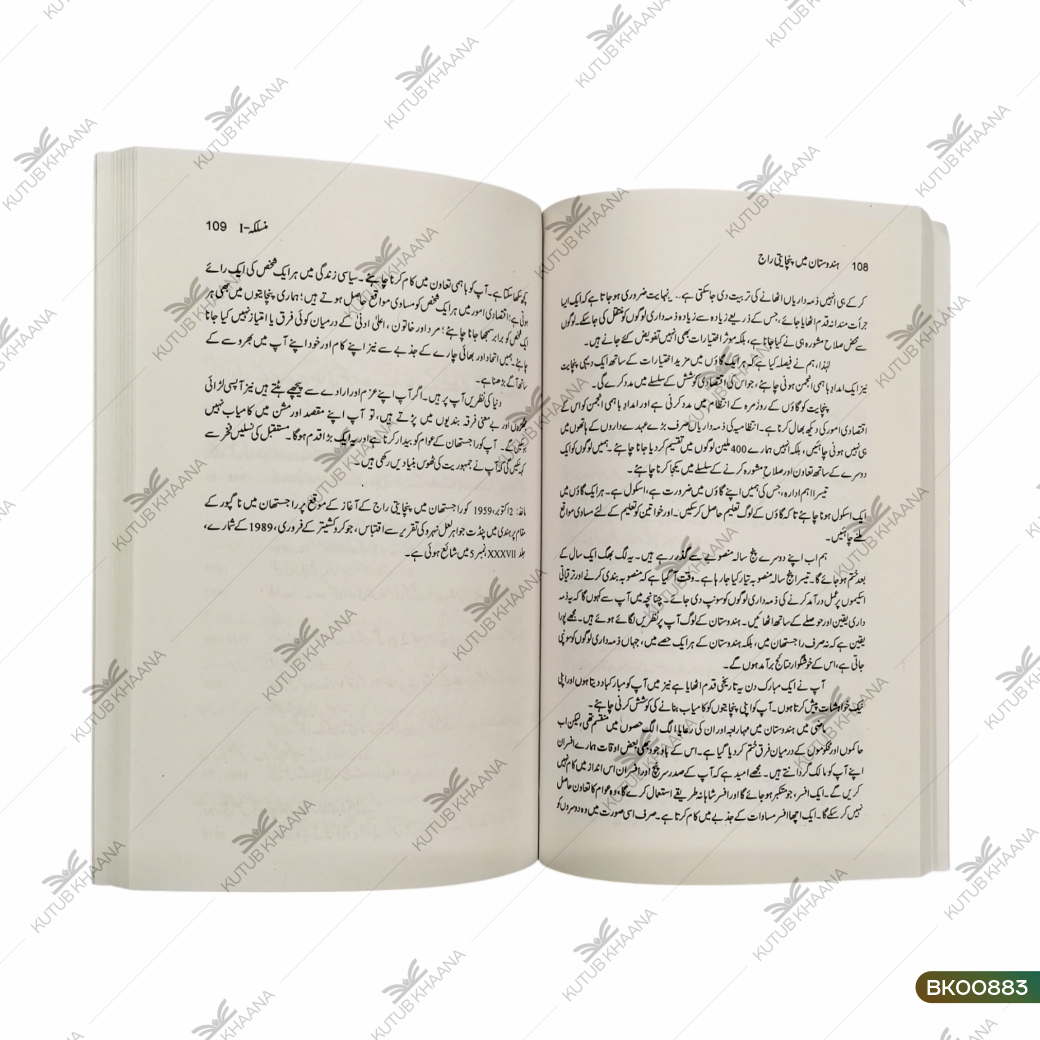 108 ہندوستان میں پنچایتی راج
کر کے ہی انہیں ذمہ داریاں اٹھانے کی تربیت دی جاسکتی ہے۔ یہ نہایت ضروری ہو جاتا ہے کہ ایک ایسا
جرأت مندانہ قدم اٹھایا جائے، جس کے ذریعے زیادہ سے زیادہ ذمہ داری لوگوں کو منتقل کی جاسکے۔ لوگوں
سے محض صلاح مشورہ ہی نے کیا جانا ہے، بلکہ موثر اختیارات بھی انہیں تفویض کئے جانے ہیں۔
لہٰذا، ہم نے فیصلہ کیا ہے کہ ہر ایک گاؤں میں مزید اختیارات کے ساتھ ایک دیہی پنچایت
نیز ایک امداد باہمی انجمن ہونی چاہئے، جو اس کی اقتصادی کوشش کے سلسلے میں مدد کرے گی۔
پنچایت کو گاؤں کے روزمرہ کے انتظام میں مدد کرنی ہے اور امداد باہمی انجمن کو اس کے
اقتصادی امور کی دیکھ بھال کرنا ہے۔ انتظامیہ کی ذمہ داریاں صرف بڑے عہدے داروں کے ہاتھوں میں
ہی نہیں ہونی چاہئیں، بلکہ انہیں ہمارے 400 ملین لوگوں میں تقسیم کر دیا جانا چاہئے۔ ہمیں لوگوں کو ایک
دوسرے کے ساتھ تعاون اور صلاح مشورہ کرنے کے سلسلے میں یکجا کرنا چاہئے۔
تیسرا اہم ادارہ، جس کی ہمیں اپنے گاؤں میں ضرورت ہے، اسکول ہے۔ ہر ایک گاؤں میں
ایک اسکول ہونا چاہئے تاکہ گاؤں کے لوگ تعلیم حاصل کر سکیں۔ اور خواتین کو تعلیم کے لئے مساوی مواقع
ملنے چاہئیں۔
ہم اب اپنے دوسرے پنج سالہ منصوبے سے گذر رہے ہیں۔ یہ لگ بھگ ایک سال کے
بعد ختم ہو جائے گا۔ تیسرا پنج سالہ منصوبہ تیار کیا جا رہا ہے۔ وقت آ گیا ہے کہ منصوبہ بندی کرنے اور ترقیاتی
اسکیموں پر عمل درآمد کرنے کی ذمہ داری لوگوں کو سونپ دی جائے۔ چنانچہ میں آپ سے کہوں گا کہ یہ ذمہ
داری یقین اور حوصلے کے ساتھ اٹھائیں۔ ہندوستان کے لوگ آپ پر نظریں لگائے ہوئے ہیں۔ مجھے پورا
یقین ہے کہ نہ صرف راجستھان میں، بلکہ ہندوستان کے ہر ایک حصے میں، جہاں ذمہ داری لوگوں کو سونپی
جاتی ہے، اس کے خوشگوار نتائج برآمد ہوں گے۔
آپ نے ایک مبارک دن یہ تاریخی قدم اٹھایا ہے نیز میں آپ کو مبارکباد دیتا ہوں اور اپنی
نیک خواہشات پیش کرتا ہوں۔ آپ کو اپنی پنچایتوں کو کامیاب بنانے کی کوشش کرنی چاہئے۔
ماضی میں ہندوستان میں مہاراجہ اور ان کی رعایا الگ الگ حصوں میں منقسم تھی، لیکن اب
حاکموں اور محکوموں کے درمیان فرق ختم کر دیا گیا ہے۔ اس کے باوجود بھی بعض اوقات ہمارے افسران
اپنے آپ کو مالک گردانتے ہیں۔ مجھے امید ہے کہ آپ کے صدر سر پنچ اور افسران اس انداز میں کام نہیں
کریں گے۔ ایک افسر، جو متکبر ہو جائے گا اور افسر شاہانہ طریقے استعمال کرے گا، وہ عوام کا تعاون حاصل
نہیں کر سکے گا۔ ایک اچھا افسر مساوات کے جذبے میں کام کرتا ہے۔ صرف اسی صورت میں وہ دوسروں کو
منسلکہ-I 109
کچھ سکھا سکتا ہے۔ آپ کو باہمی تعاون میں کام کرنا چاہئے۔ سیاسی زندگی میں ہر ایک شخص کی ایک رائے
ہوتی ہے؛ اقتصادی امور میں ہر ایک شخص کو مساوی مواقع حاصل ہوتے ہیں؛ ہماری پنچایتوں میں بھی ہر
ایک شخص کو برابر سمجھا جانا چاہئے؛ مرد اور خاتون، اعلیٰ اور ادنیٰ کے درمیان کوئی فرق یا امتیاز نہیں کیا جانا
چاہئے۔ ہمیں اتحاد اور بھائی چارے کے جذبے سے نیز اپنے کام اور خود اپنے آپ میں بھروسے کے
ساتھ آگے بڑھنا ہے۔
دنیا کی نظریں آپ پر ہیں۔ اگر آپ اپنے عزم اور ارادے سے پیچھے ہٹتے ہیں نیز آپسی لڑائی
جھگڑوں اور بے معنی فرقہ بندیوں میں پڑتے ہیں، تو آپ اپنے مقصد اور مشن میں کامیاب نہیں
ہو سکیں گے۔ آپ کو راجستھان کے عوام کو بیدار کرنا ہے اور یہ ایک بڑا قدم ہوگا۔ مستقبل کی نسلیں فخر سے
کہہ سکیں گی کہ آپ نے جمہوریت کی ٹھوس بنیادیں رکھی ہیں۔
ماخذ: 2 اکتوبر، 1959 کو راجستھان میں پنچایتی راج کے آغاز کے موقع پر راجستھان میں ناگپور کے
مقام پر ہندی میں پنڈت جواہر لعل نہرو کی تقریر سے اقتباس، جو کروکشیتر کے فروری، 1989 کے شمارے،
جلد XXXVII نمبر 5 میں شائع ہوئی ہے۔
KUTUB KHAANA
BK00883